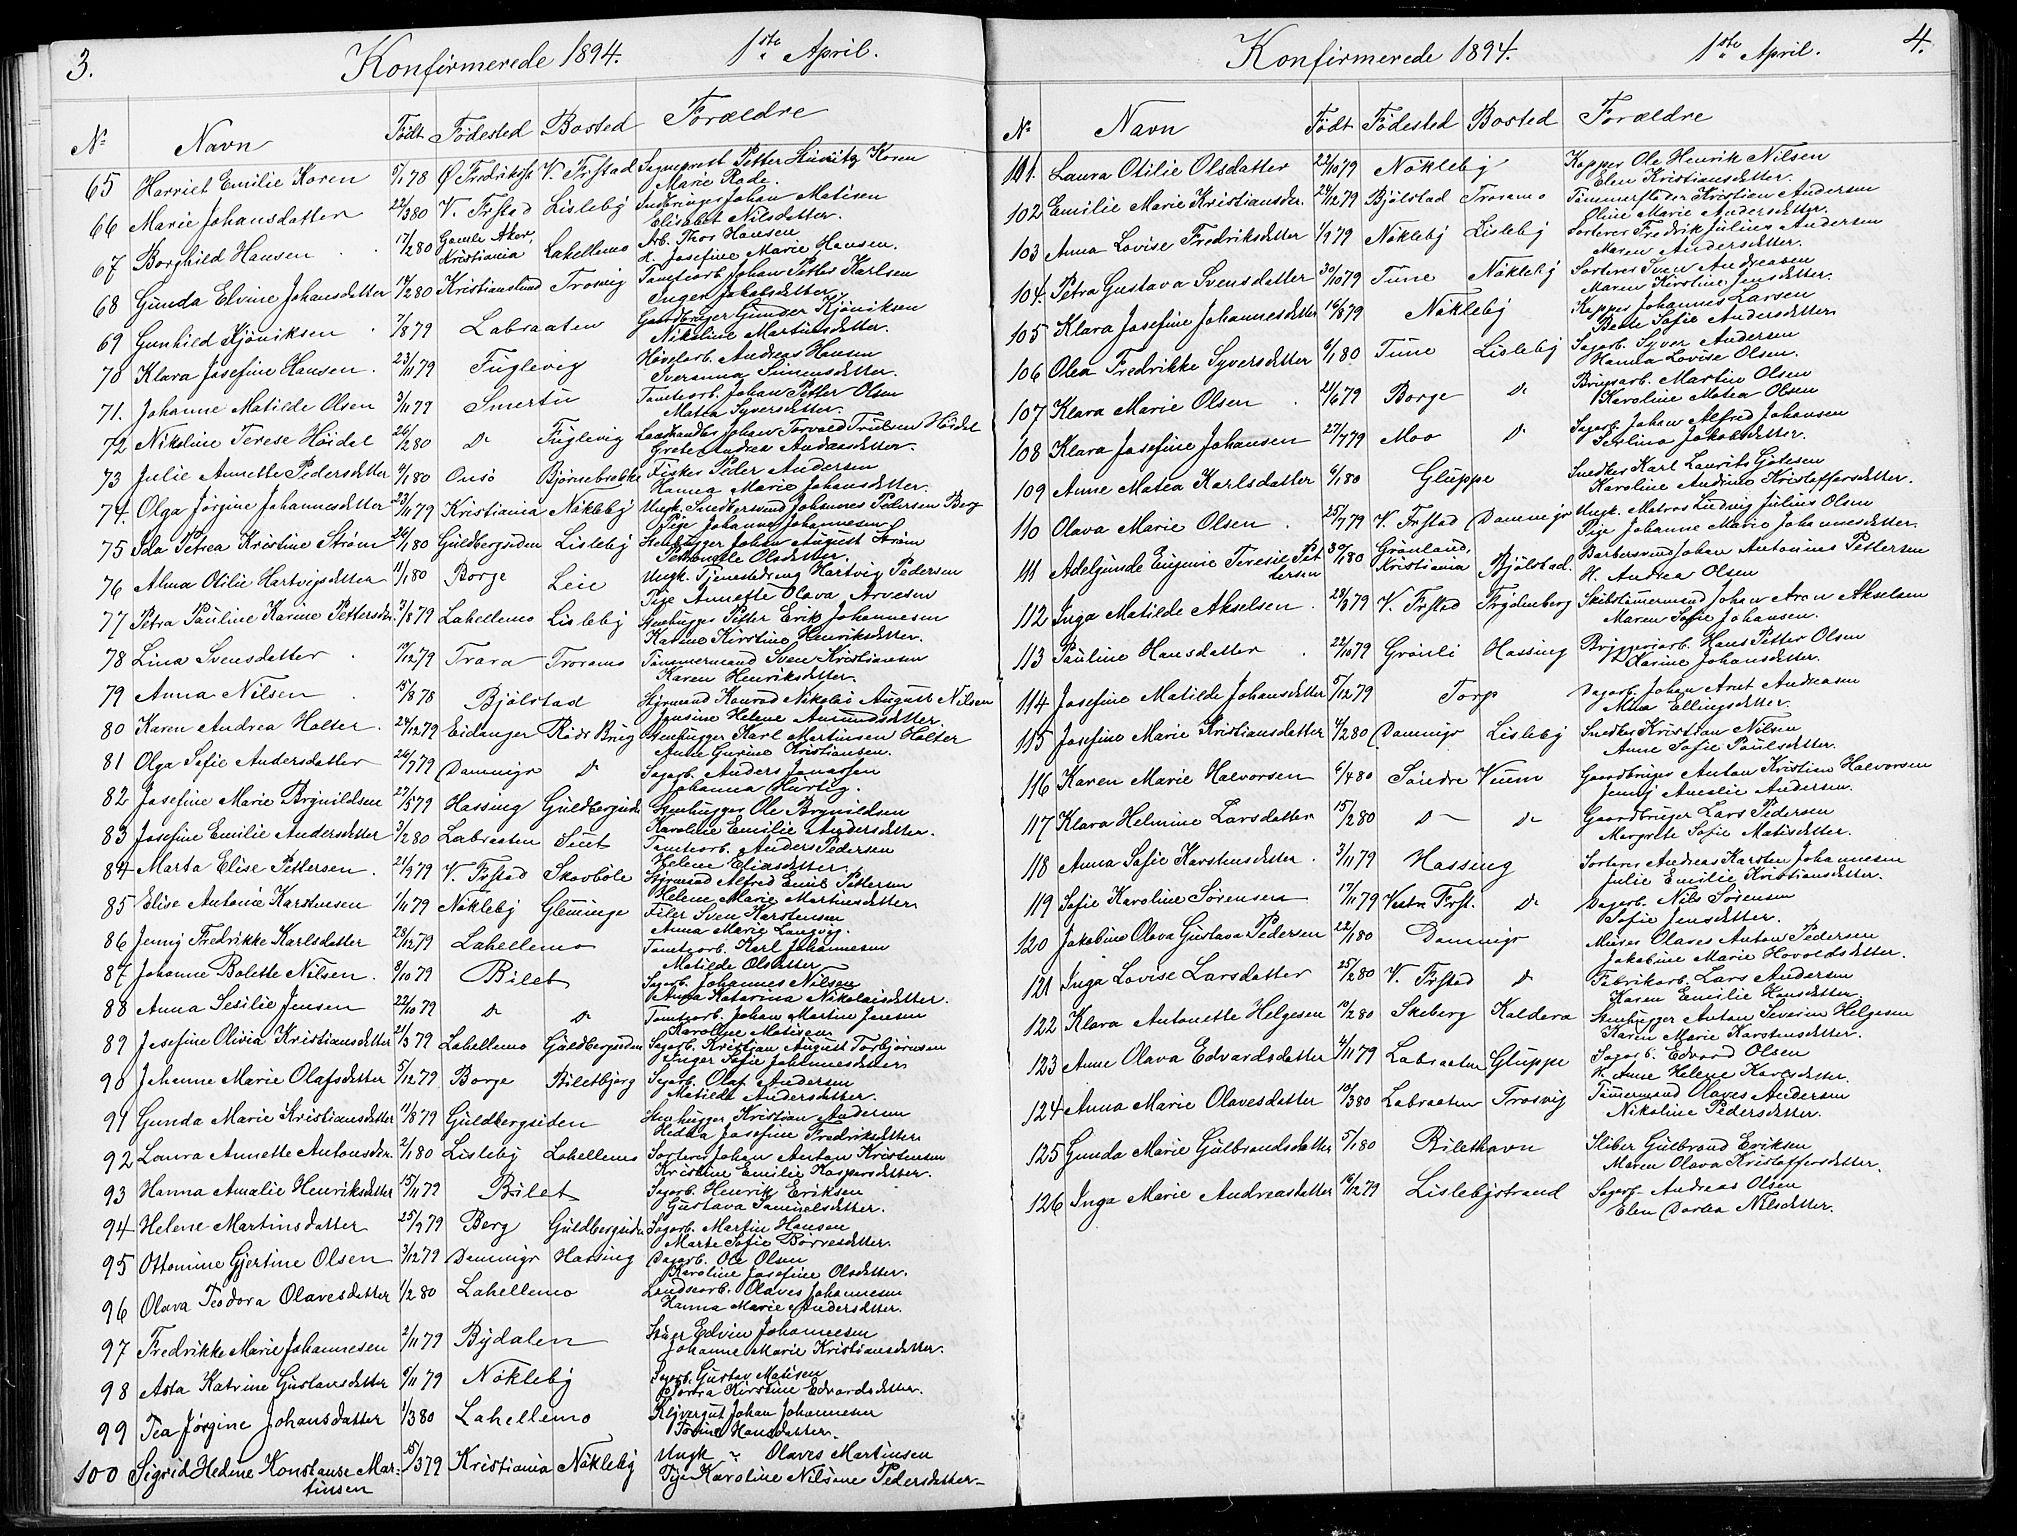 3.
Konfirmerede 1894. 1ste April.
No Navn Født Fødested Bosted Forældre
65 Harriet Emilie Koren 5/1 78 Ø. Fredrikst. V. Frstad Sogneprest Petter Koren
Marie Rode.
66 Marie Johansdatter 22/3 80 V. Frstad Lisleby Johan Matisen
Elisabet Nilsdatter.
67 Borghild Hansen 17/2 80 Gamle Aker, Kristiania Lahellemo Arb. Thor Hansen
H. Josefine Marie Hansen.
68 Gunda Elvine Johansdatter 14/2 80 Kristianslund Trosvig Tomtearb. Johan Petter Karlsen
Inger Jakobsdatter.
69 Gunhild Kjöniksen 7/8 79 Labraaten Gaardbruger Gunder Kjöniksen
Nikoline Martinsdatter.
70 Klara Josefine Hansen 23/11 79 Fuglevig Høvelarb. Andreas Hansen
Iveranna Simensdatter.
71. Johanne Matilde Olsen 3/11 79 Smertu Tomtearb. Johan Petter Olsen
Matea Syversdatter.
72 Nikoline Terese Høidal 26/2 80 Do Fuglevig Landhandler Johan Torvald Trulsen
Grete Andrea Andreasdatter.
73 Julie Annette Pedersdatter 4/1 80 Onsö Bjørnebrakke Fisker Peder Andersen
Hanna Marie Johansdatter.
74. Olga Jörgine Johannesdatter 23/11 79 Kristiania Nökleby Ungk. Snedkersvend Johannes Pedersen Berg
Pige Johanne Johannesen
75 Ida Petrea Kristine Ström 26/1 80 Guldbergsiden Lisleby Johan August Ström
Petronelle Olsdatter.
76 Alma Otilie Hartvigsdatter 11/1 80 Borge Leie Ungk. Tjenestedreng Hartvig Pedersen
Pige Annette Olava Arvesen
77 Petra Pauline Karine Pettersdtr. 3/8 79 Lahellemo Lisleby Stenhugger Petter Erik Johannesen
Karine Kirstine Henriksdatter.
78 Lina Svensdatter 17/12 79 Trara Troramo Tömmermand Sven Kristiansen
Karen Henriksdatter.
79 Anna Nilsen 15/8 78 Bjölstad Styrmand Konrad Nikolai August Nilsen
Jensine Helene Amundsdatter.
80 Karen Andrea Holter 24/12 79 Eidanger Röds Brug Stenhugger Karl Martinsen Holter
Anne Gurine Kristiansen.
81 Olga Sofie Andersdatter 26/7 79 Damnigr Do Sagarb. Anders Jonassen
Johanna Hurtig.
82 Josefine Marie Brynildsen 27/5 79 Hassing Guldbergsiden Stenhugger Ole Brynildsen
Karoline Emilie Andersdatter.
83 Josefine Emilie Andersdatter 3/2 80 Labraaten Sint Tomtearb. Anders Pedersen
Helene Eliasdatter.
84 Marta Elise Pettersen 21/9 79 V. Frstad Skovböle Styrmand Alfred Emil Pettersen
Helene Marie Martinsdatter.
85 Elise Antonie Karstensen 1/11 79 Nökleby Glemminge Filer Sven Karstensen
Anna Marie Langvig.
86 Jenny Fredrikke Karlsdatter 23/12 79 Lahellemo Tomtearb. Karl Johannesen
Matilde Olsdatter
87 Johanne Bolette Nilsen 8/10 79 Bilet Sagarb. Johannes Nilsen
Anna Katarina Nikolaisdatter.
88 Anna Sesilie Jensen 22/10 79 Do Do Tomtearb. Johan Martin Jensen
Karoline Matisen
89 Josefine Olivia Kristiansdatter 21/3 79 Lahellemo Guldbergsiden Sagarb. Kristian August Torbjörnsen
Inger Sofie Johannesdatter
90 Johanne Marie Olafsdatter 5/12 79 Borge Biletbjerg Sagarb. Olaf Andersen
Matilde Andersdatter.
91 Gunda Marie Kristiansdatter 11/8 79 Guldbergsiden Stenhugger Kristian Andersen
Hedda Josefine Fredriksdatter
92 Laura Annette Antonsdtr. 2/1 80 Lisleby Lahellemo Sorterer Johan Anton Kristensen
Kristine Emilie Kaspersdatter.
93 Hanna Amalie Henriksdatter 15/11 79 Bilet Sagarb. Henrik Eriksen
Gustava Samuelsdatter.
94 Helene Martinsdatter 25/9 79 Berg Guldbergsiden Sagarb. Martin Hansen
Marte Sofie Börresdatter.
95 Ottomine Gjertine Olsen 3/12 79 Damnigr Hassing Dagarb. Ole Olsen
Karoline Josefine Olsdatter.
96 Olava Teodora Olavesdatter 1/2 80 Lahellemo Landsearb. Olaves Johannesen
Hanna Marie Andersdatter.
97 Fredrikke Marie Johannesen 2/11 79 Bydalen Edvin Johannesen
Johanne Marie Kristiansdatter.
98 Asta Katrine Gustavsdatter 6/11 79 Nökleby Sagarb. Gustav Matisen
Kirstine Edvardsdatter.
99 Tea Jørgine Johansdatter 1/3 80 Lahellemo Klyvergut Johan Johannesen
Torine Hansdatter.
100 Sigrid Hedine Konstanse Mar-
tinsen 15/3 79 Kristiania Nökleby Ungk ~ Olaves Martinsen
Pige Karoline Nilsine Pedersdatter
4.
Konfirmerede 1894. 1ste April.
No Navn Født Fødested Bosted Forældre
101. Laura Otilie Olsdatter 22/10 79 Nökleby Kapper Ole Henrik Nilsen
Elen Kristiansdatter.
102 Emilie Marie Kristiansdtr. 24/12 79 Bjölstad Troramo Tömmerfløder Kristian Andersen
Oline Marie Andersdatter.
103 Anna Lovise Fredriksdatter 1/9 79 Nökleby Lisleby Sorterer Fredrik Julius Andersen
Maren Andersdatter.
104. Petra Gustava Svensdatter 30/10 79 Tune Nökleby Sorterer Sven Andreasen
Maren Kirstine Jensdatter.
105 Klara Josefine Johannesdatter 16/8 79 Nökleby Kapper Johannes Larsen
Berte Sofie Andersdatter
106 Olea Fredrikke Syversdatter 6/1 80 Tune Lisleby Sagarb. Syver Andersen
Hanna Lovise Olsen.
107 Klara Marie Olsen 21/6 79 Borge Do Brugsarb. Martin Olsen
Karoline Matea Olsen
108 Klara Josefine Johansen 27/7 79 Moo Do Sagarb. Johan Alfred Johansen
Severine Jakobsdatter.
109 Anne Matea Karlsdatter 6/1 80 Gluppe Snedker Karl Laurits Götesen
Karoline Andine Kristoffersdatter.
110 Olava Marie Olsen 25/7 79 V. Frstad Damnigr Ungk. Matros Ludvig Julius Olsen
Pige Johanne Marie Johannesdatter.
111 Adelgunde Eugenie Teresie Pet-
tersen 30/1 80 Grönland, Kristiania Bjölstad. Barbersvend Johan Antonius Pettersen
H. Andrea Olsen
112 Inga Matilde Akselsen 28/8 79 V. Frstad Frydenberg Skibstömermand Johan Aron Akselsen
Maren Sofie Johansen.
113 Pauline Hansdatter 22/10 79 Grönli Hassing Bryggeriarb. Hans Petter Olsen
Karine Johansdatter.
114 Josefine Matilde Johansdatter 5/12 79 Torp Dagarb. Johan Arnt Andreasen
Mina Ellingsdatter.
115 Josefine Marie Kristiansdatter 4/2 80 Damnigr Lisleby Snedker Kristian Nilsen
Anne Sofie Paulsdatter.
116 Karen Marie Halvorsen 6/4 80 Söndre Veum Gaardbruger Anton Kristian Halvorsen
Jenny Amalie Andersen.
117 Klara Helmine Larsdatter 15/2 80 Do Do Gaardbruger Lars Pedersen
Margrete Sofie Matisdatter.
118 Anna Sofie Karstensdatter 3/11 79 Hassing Sorterer Andreas Karsten Johannesen
Julie Emilie Kristiansdatter.
119 Sofie Karoline Sörensen 17/11 79 Vestre Frst. Do Dagarb. Nils Sörensen
Sofie Jensdatter.
120 Jakobine Olava Gustava Pedersen 22/1 80 Damnigr Murer Olaves Anton Pedersen
Jakobine Marie Hovoldsdatter.
121 Inga Lovise Larsdatter 25/2 80 V. Frstad Do Fabrikarb. Lars Andersen
Karen Emilie Hansdatter
122 Klara Antonette Helgesen 10/2 80 Skeberg Kaldera Stenhugger Anton Severin Helgesen
Karen Marie Karstensdatter.
123 Anne Olava Edvardsdatter 4/11 79 Labraaten Gluppe Sagarb. Edvard Olsen
H. Anne Helene Karesdatter.
124 Anna Marie Olavesdatter 10/3 80 Labraaten Trosvig Tömermand Olaves Andersen
Nikoline Pedersdatter.
125 Gunda Marie Gulbrandsdatter 5/1 80 Bilethavn Sliber Gulbrand Eriksen
Maren Olava Kristoffersdatter.
126 Inga Marie Andreasdatter 16/12 79 Lislebystrand Sagarb. Andreas Olsen
Elen Dortea Nilsdatter.